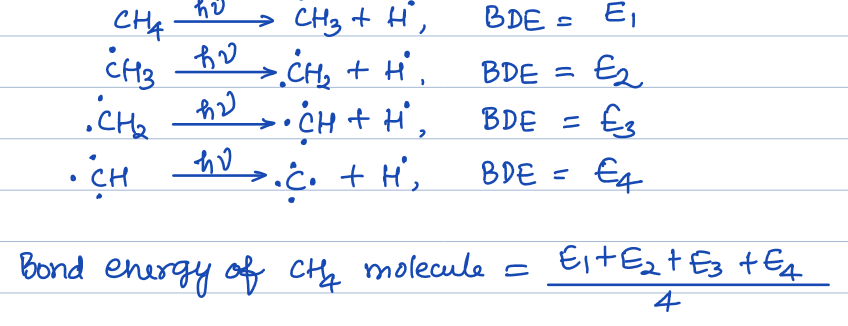 CH₄ —hν→ ĊH₃ + H•, BDE = E₁
ĊH₃ —hν→ .ĊH₂ + H•, BDE = E₂
.ĊH₂ —hν→ •ĊH + H•, BDE = E₃
•ĊH —hν→ .Ċ. + H•, BDE = E₄
Bond energy of CH₄ molecule = E₁+E₂+E₃+E₄ / 4